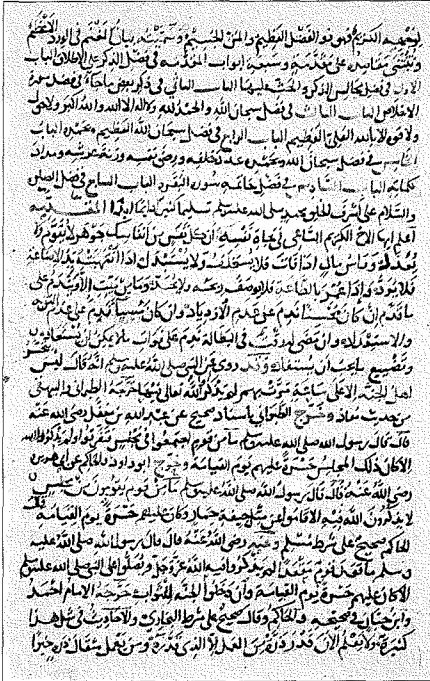 لوجهه الكريم فهو ذو الفضل العظيم والمن الجسيم وسميته بيان المغنم في الورد الأعظم
وتنقضي مقاصده على مقدمة وسبعة أبواب المقدمة في فضل الذكر على الإطلاق الباب
الأول في فضل مجالس الذكر والحث عليها الباب الثاني في ذكر بعض ما جاء في فضل سورة
الإخلاص الباب الثالث في فضل سبحان الله والحمد لله ولا إله إلا الله والله أكبر ولا حول
ولا قوة إلا بالله العلي العظيم الباب الرابع في فضل سبحان الله العظيم وبحمده الباب
الخامس في فضل سبحان الله وبحمده عدد خلقه ورضى نفسه وزنة عرشه ومداد
كلماته الباب السادس في فضل خاتمة سورة البقرة الباب السابع في فضل الصلاة
والسلام على أشرف الخلق محمد صلى الله عليه وسلم تسليما كثيرا دائما أبدا المقدمة
اعلم أيها الأخ الكريم الساعي في حياة نفسه أن كل نفس من أنفاسك جوهر لا تقوم
بدله ورأس مال إذا فات فلا يستخلف ولا يستدرك إذا
فلا بد وإذا عمر بالطاعة فلا يوصف وما من ميت إلا ويندم على
ما قدم إن كان محسنا ندم على عدم الازدياد وإن كان مسيئا ندم على عدم
والاستعداد وإن مضى له وقت في البطالة ندم على فوات ما لا يمكن أن يستعاد
وتضييع ما يجب أن يستفاد وقد روي عن النبي صلى الله عليه وسلم أنه قال ليس يتحسر
أهل الجنة إلا على ساعة مرت بهم لم يذكروا الله تعالى فيها خرجه الطبراني والبيهقي
من حديث معاذ وخرج الطبراني بإسناد صحيح عن عبد الله بن مغفل رضي الله عنه
قال قال رسول الله صلى الله عليه وسلم ما من قوم اجتمعوا في مجلس تفرقوا ولم يذكروا الله
إلا كان ذلك المجلس حسرة عليهم يوم القيامة وخرج أبو داود والحاكم عن أبي هريرة
رضي الله عنه قال قال رسول الله صلى الله عليه وسلم ما من قوم يقومون من مجلس
لا يذكرون الله فيه إلا قاموا عن مثل جيفة حمار وكان عليهم حسرة يوم القيامة قال
الحاكم صحيح على شرط مسلم وعنه رضي الله عنه قال قال رسول الله صلى الله عليه
وسلم ما قعد قوم مقعدا لم يذكروا فيه الله عز وجل ويصلوا على النبي صلى الله عليه وسلم
إلا كان عليهم حسرة يوم القيامة وإن دخلوا الجنة للثواب خرجه الإمام أحمد
وابن حبان في صحيحه والحاكم وقال صحيح على شرط البخاري والأحاديث في مثل هذا
كثيرة ولا يعلم الآن قدر ذرة من العمل إلا الذي قدره ومن يعمل مثقال ذرة خيرا